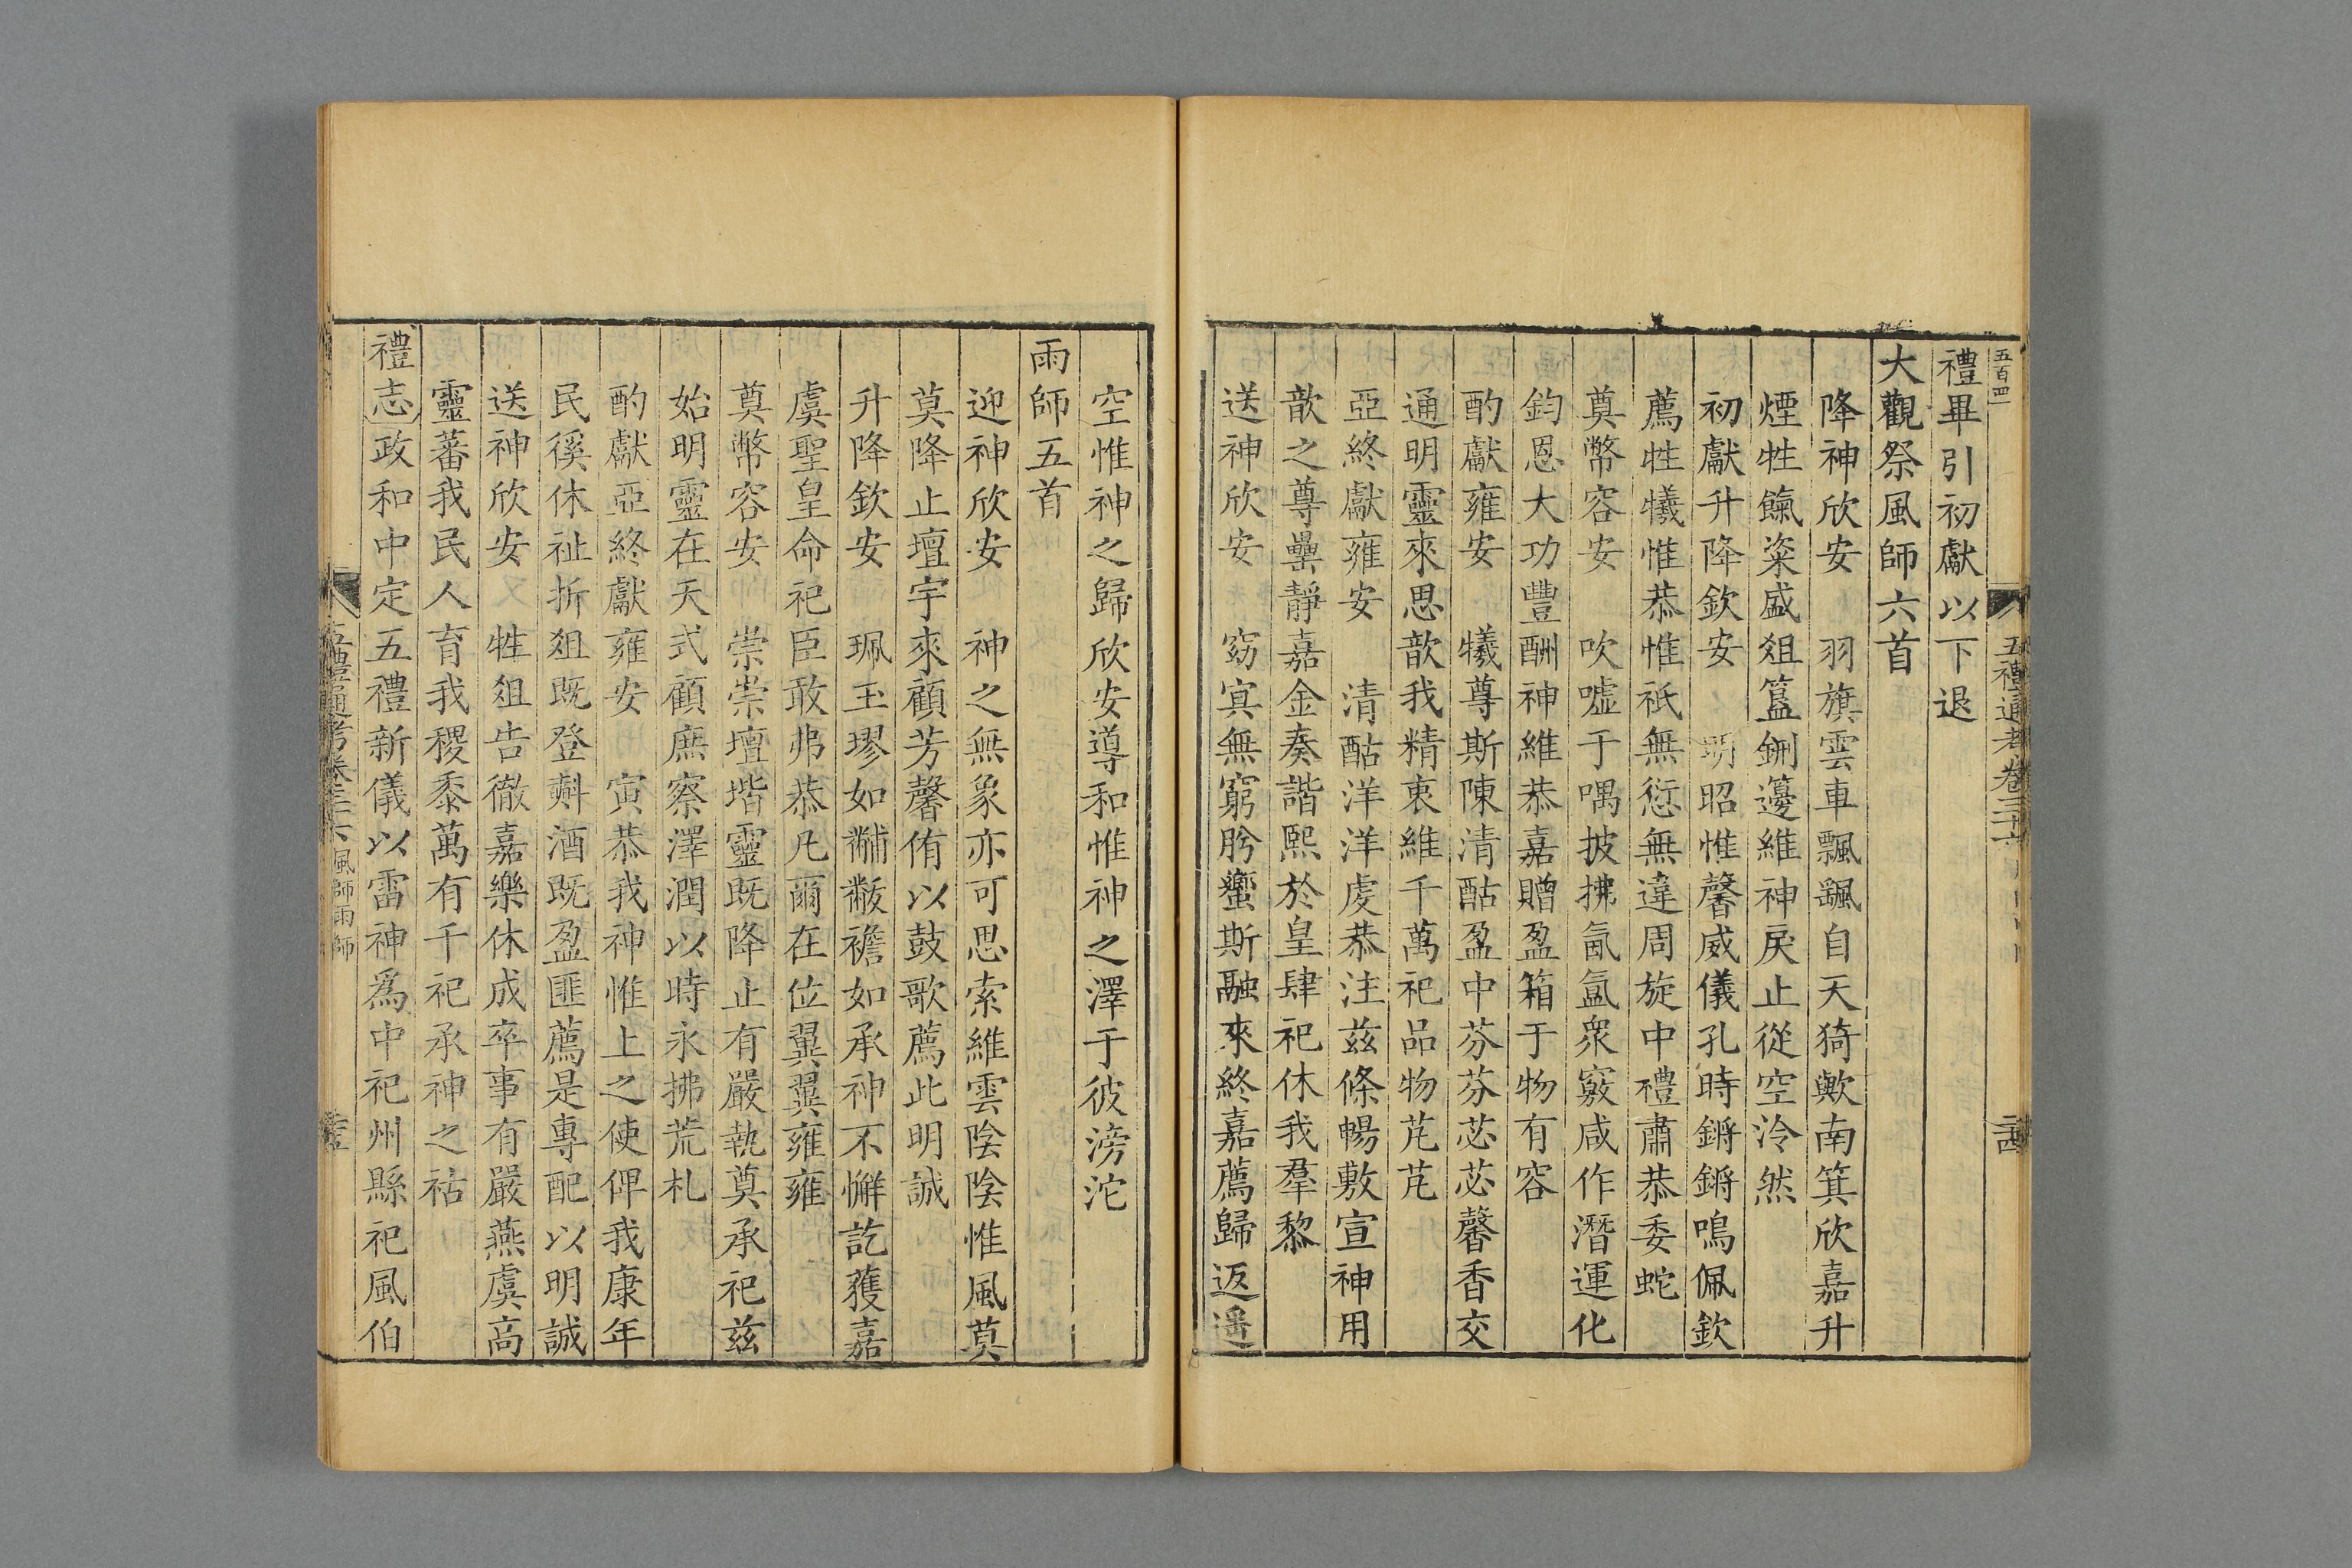 五百四
五禮通考卷三十六
禮畢引初獻以下退
大觀祭風師六首
降神欣安　羽旗雲車飄颻自天猗歟南箕欣嘉升
煙牲餼粢盛俎簋鉶籩維神戾止從空泠然
初獻升降欽安　明昭惟馨威儀孔時鏘鏘鳴佩欽
薦牲犧惟恭惟祇無愆無違周旋中禮肅恭委蛇
奠幣容安　吹噓于喁披拂氤氳衆竅咸作潛運化
鈞恩大功豐酬神維恭嘉贈盈箱于物有容
酌獻雍安　犧尊斯陳清酤盈中芬芬苾苾馨香交
通明靈來思歆我精衷維千萬祀品物芃芃
亞終獻雍安　清酤洋洋虔恭注茲條暢敷宣神用
歆之尊罍靜嘉金奏諧熙於皇肆祀休我羣黎
送神欣安　窈冥無窮肸蠁斯融來終嘉薦歸返遥
空惟神之歸欣安導和惟神之澤于彼滂沱
雨師五首
迎神欣安　神之無象亦可思索維雲陰陰惟風莫
莫降止壇宇來顧芳馨侑以鼓歌薦此明誠
升降欽安　珮玉璆如黼黻襜如承神不懈訖獲嘉
虞聖皇命祀臣敢弗恭凡爾在位翼翼雍雍
奠幣容安　崇崇壇堦靈既降止有嚴執奠承祀茲
始明靈在天式顧庶察澤潤以時永拂荒札
酌獻亞終獻雍安　寅恭我神惟上之使俾我康年
民徯休祉折俎既登斟酒既盈匪薦是專配以明誠
送神欣安　牲俎告徹嘉樂休成卒事有嚴燕虞高
靈蕃我民人育我稷黍萬有千祀承神之祜
禮志政和中定五禮新儀以雷神爲中祀州縣祀風伯
五禮通考卷三十六風師雨師